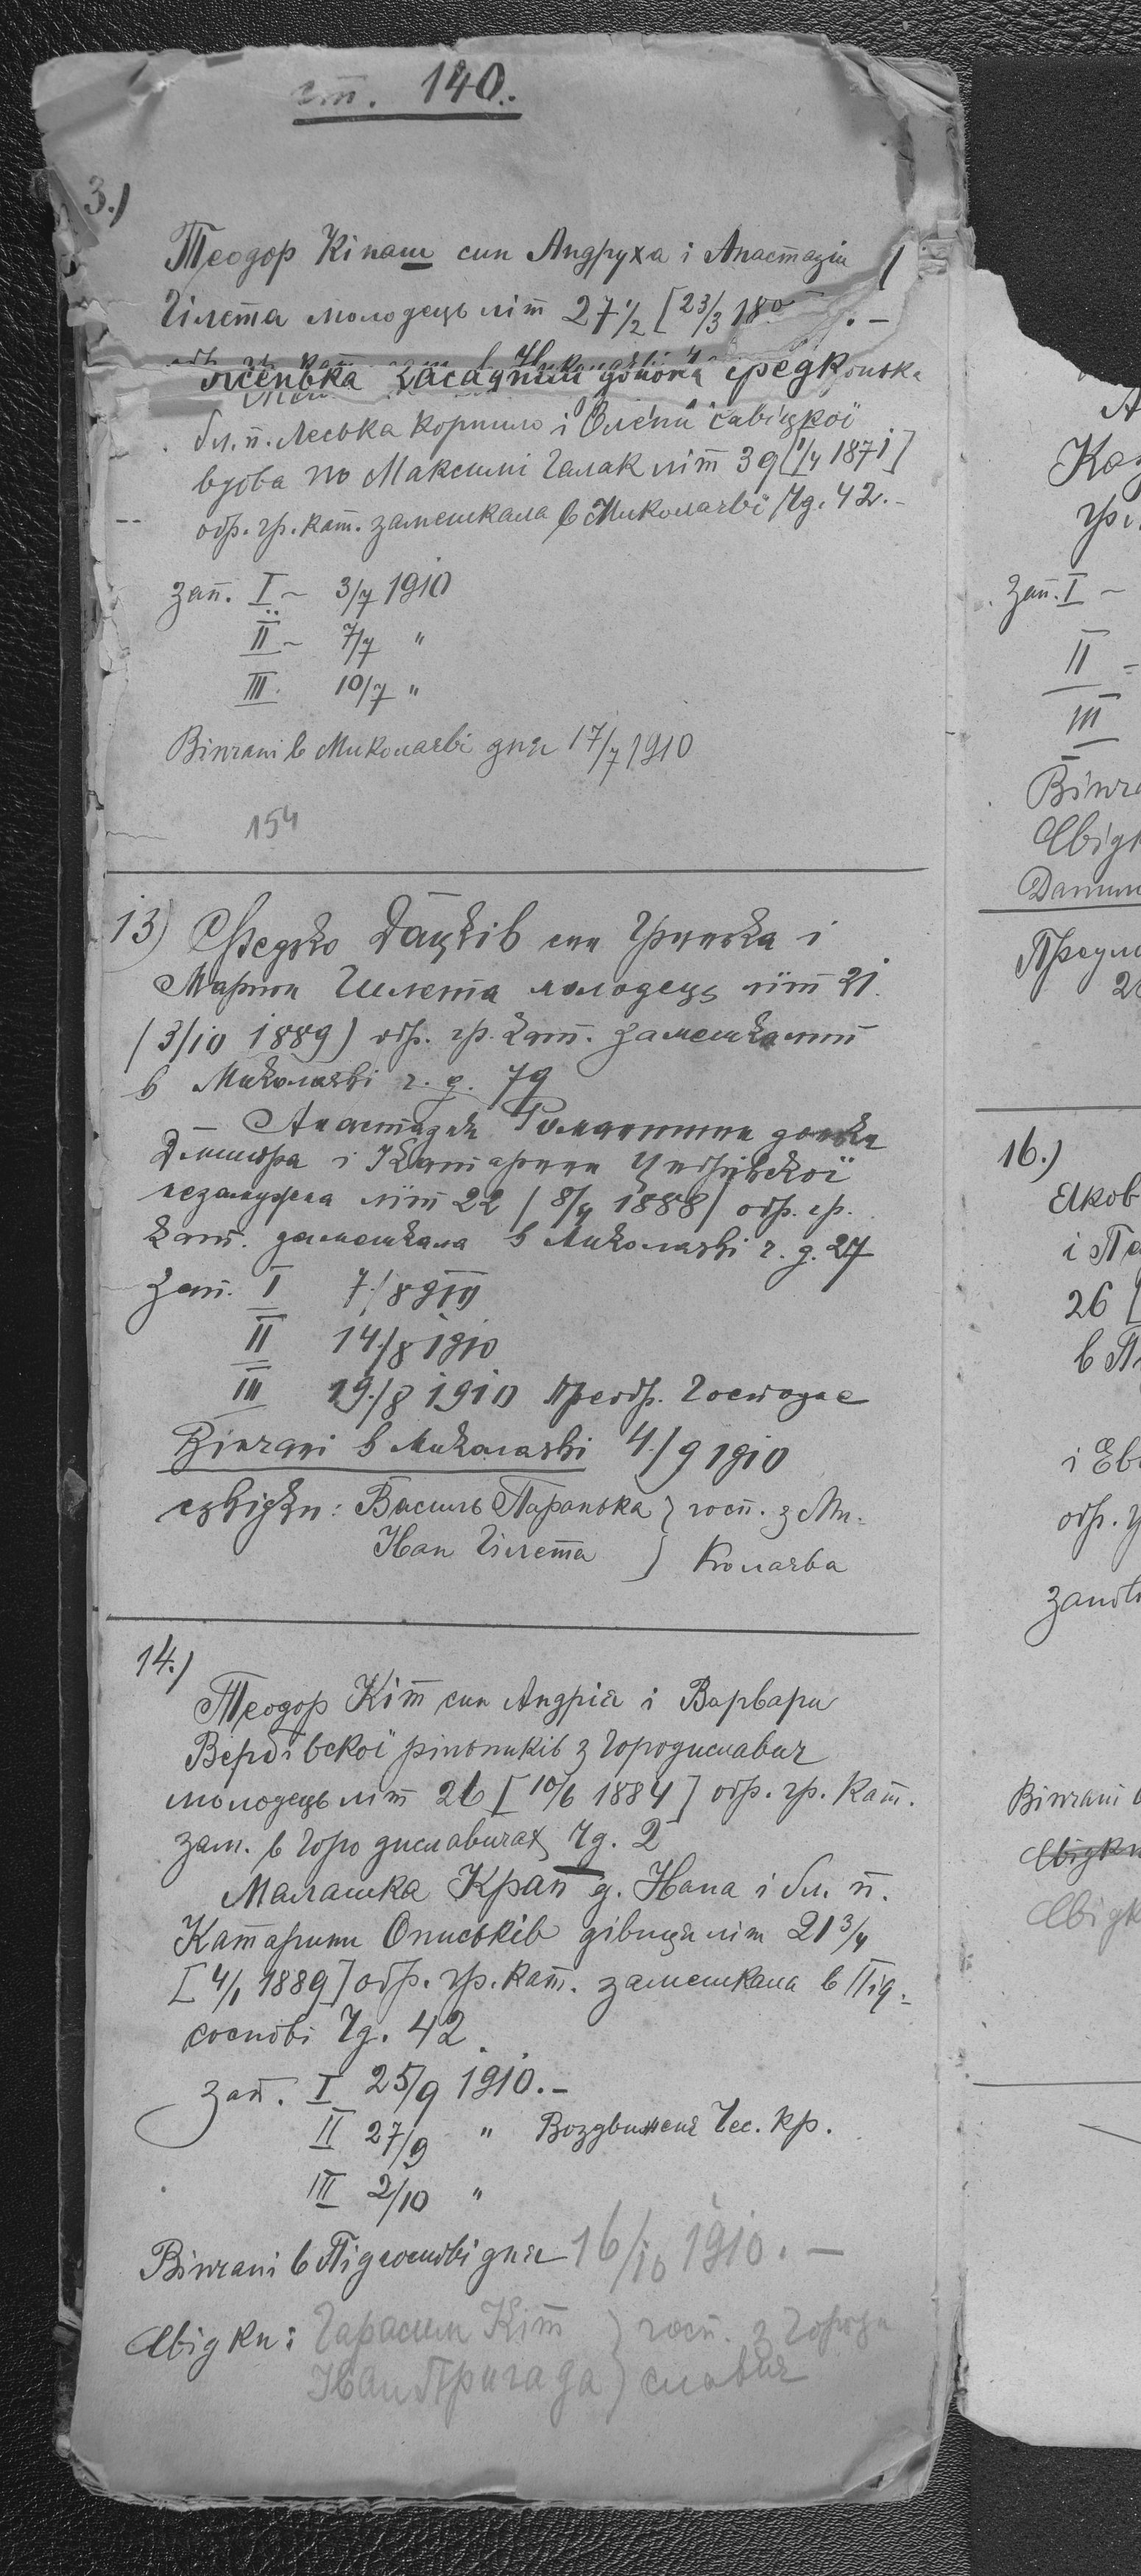 ст. 140.
3.)
Теодор Кінаш син Андруха і Анастазиї
Гілета молодець літ 27 1/2 [23/3 18
бл. п. Леська Корпило і Олени Савіцкої
вдова по Максимі Галак літ 39 [1/4 1871]
обр. гр. кат. замешкала в Миколаєві Чд. 42.-
зап. I - 3/7 1910
II - 7/7 "
III. 10/7 "
Вінчані в Миколаєві дня 17/7 1910
154
13) Федько Дацків син Гринька і
Марти Гилета молодець літ 21.
(3/10 1889) обр. гр. кат. замешкалий
в Миколаєві ч. д. 79
Анастазия Романишин донька
Дмитра і Катарини
незамужна літ 22 (8/4 1888) обр. гр.
кат. замешкала в Миколаєві ч. д. 27
Зап. I 7./8 910
II 14./8 1910
III 19./8 1910 Преобр. Господне
Вінчані в Миколаєві 4./9 1910
сьвідки: Василь Паранька } госп. з Ми-
Іван Гілета } колаєва
14.)
Теодор Кіт син Андрія і Варвари
Вербівскої рільників з Городиславич
молодець літ 26 [10/6 1884] обр. гр. кат.
зам. в Городиславичах Чд. 2
Малашка Крап д. Івана і бл. п.
Катарини Ониськів дівиця літ 21 3/4
[4/1 1889] обр. гр. кат. замешкала в Під-
соснові Чд. 42.
зап. I 25/9 1910.-
II 27/9 " Воздвиженя Чес. кр.
III 2/10 "
Вінчані в Підсоснові дня 16/10 1910. -
Свідки: Гарасим Кіт } госп. з Городи
Іван Пригада } славич
Ка
гр.
Зап. I -
II -
III
Вінча
Свідк
16.)
Яков
і Па
26 [
в П
і Ев
обр. г
Вінчані
Свідки
Свідк